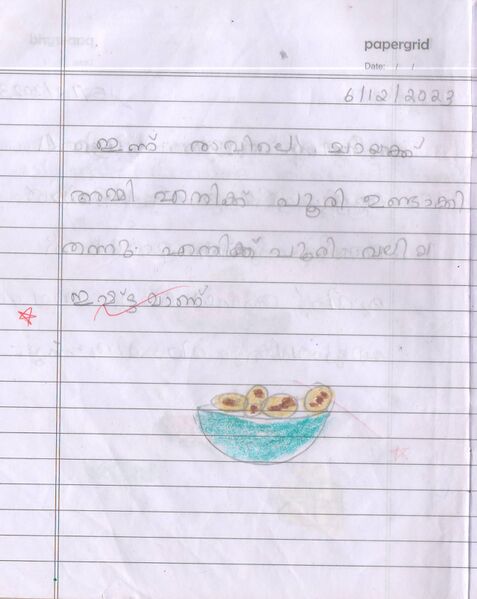 papergrid
Date: / /
6/12/2023
ഇന്ന് രാവിലെ ചായക്ക്
അമ്മി എനിക്ക് പൂരി ഉണ്ടാക്കി
തന്നു. എനിക്ക് പൂരി വലിയ
ഇഷ്ടമാണ്